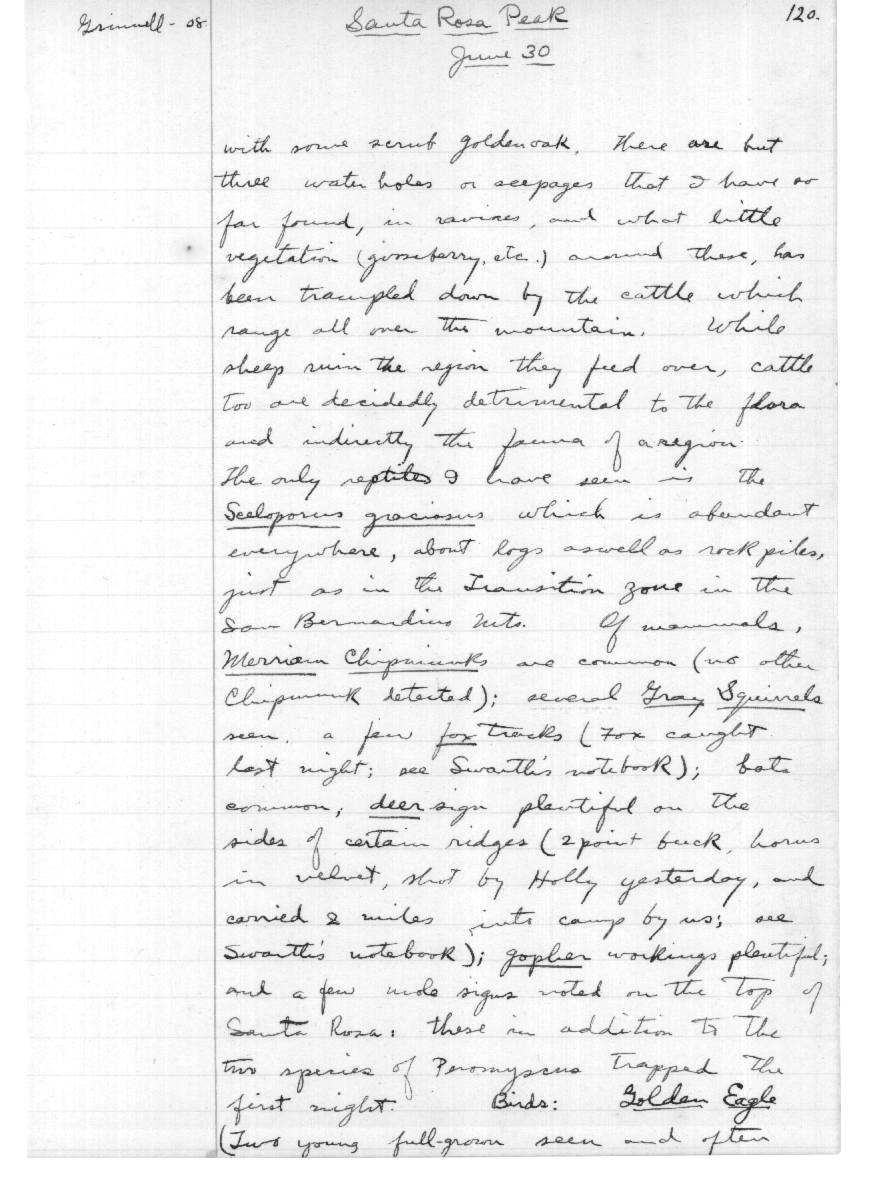 Grinnell - 08
Santa Rosa Peak
120.
June 30
with some scrub goldenoak. There are but
three water holes or seepages that I have so
far found, in ravines, and what little
vegetation (gooseberry, etc.) around these, has
been trampled down by the cattle which
range all over the mountain. While
sheep ruin the region they feed over, cattle
too are decidedly detrimental to the flora
and indirectly the fauna of a region.
The only reptiles I have seen is the
Sceloporus graciosus which is abundant
everywhere, about logs aswell as rock piles,
just as in the Transition zone in the
San Bernardino Mts. Of mammals,
Merriam Chipmunks are common (no other
Chipmunk detected); several Gray Squirrels
seen. a few fox tracks (Fox caught
last night; see Swarth's notebook); bats
common; deer sign plentiful on the
sides of certain ridges (2 point buck, horns
in velvet, shot by Holly yesterday, and
carried 2 miles into camp by us; see
Swarth's notebook); gopher workings plentiful;
and a few mole signs noted on the top of
Santa Rosa: these in addition to the
two species of Peromyscus trapped the
first night. Birds: Golden Eagle
(Two young full-grown seen and often